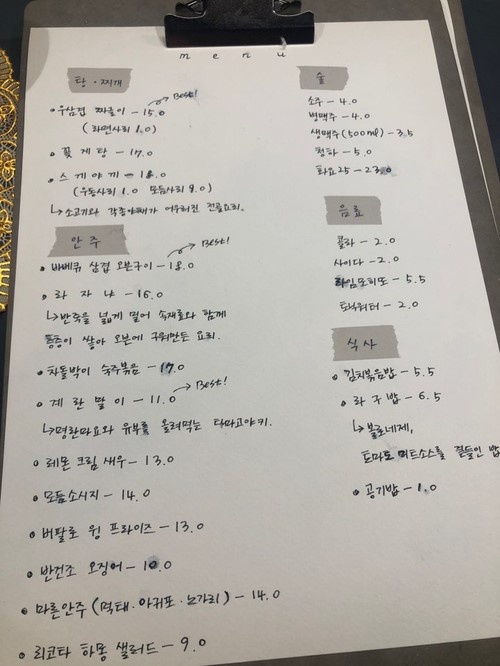 menu
탕·찌개
• 우삼겹 짜글이 - 15.0 Best!
(라면사리 1.0)
• 꽃게탕 - 17.0
• 스게야끼 - 18.0
(우동사리 1.0 모듬사리 9.0)
↳ 소고기와 각종야채가 어우러진 전골요리.
안주
• 바베큐 삼겹 오븐구이 - 18.0 Best!
• 라자냐 - 16.0
↳ 반죽을 넓게 밀어 속재료와 함께
층층이 쌓아 오븐에 구워만든 요리.
• 차돌박이 숙주볶음 - 17.0
• 계란말이 - 11.0 Best!
↳ 명란마요와 유부를 올려먹는 타마고야키.
• 레몬 크림 새우 - 13.0
• 모듬소시지 - 14.0
• 버팔로 윙 프라이즈 - 13.0
• 반건조 오징어 - 10.0
• 마른안주 (먹태·아귀포·노가리) - 14.0
• 리코타 하몽 샐러드 - 9.0
술
소주 - 4.0
병맥주 - 4.0
생맥주 (500ml) - 3.5
청하 - 5.0
화요25 - 23.0
음료
콜라 - 2.0
사이다 - 2.0
라임모히또 - 5.5
토닉워터 - 2.0
식사
• 김치볶음밥 - 5.5
• 라구밥 - 6.5
↳ 볼로네제,
토마토 미트소스를 곁들인 밥
• 공기밥 - 1.0